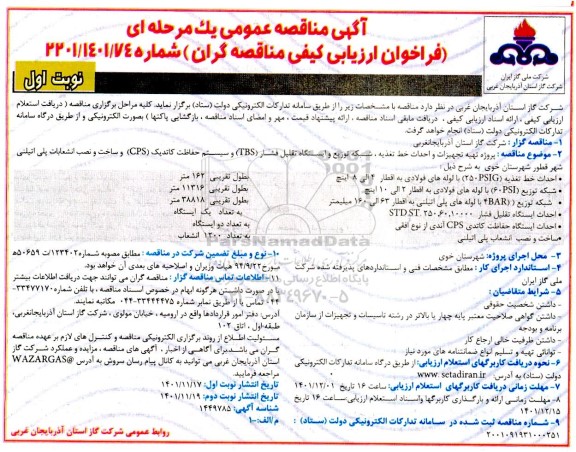 آگهی مناقصه عمومی یک مرحله ای
(فراخوان ارزیابی کیفی مناقصه گران ) شماره ۲۲۰۱/۱۴۰۱/۷۴
شرکت ملی گاز ایران
شرکت گاز استان آذربایجان غربی
نوبت اول
شرکت گاز استان آذربایجان غربی در نظر دارد مناقصه با مشخصات زیر را از طریق سامانه تدارکات الکترونیکی دولت (ستاد) برگزار نماید. کلیه مراحل برگزاری مناقصه ( دریافت استعلام
ارزیابی کیفی ، ارائه اسناد ارزیابی کیفی ، دریافت مابقی اسناد مناقصه ، ارائه پیشنهاد قیمت ، مهر و امضای اسناد مناقصه ، بازگشایی پاکتها ) بصورت الکترونیکی و از طریق درگاه سامانه
تدارکات الکترونیکی دولت (ستاد) انجام خواهد گرفت.
۱- مناقصه گزار : شرکت گاز استان آذربایجانغربی
۲- موضوع مناقصه : پروژه تهیه تجهیزات و احداث خط تغذیه ، شبکه توزیع و ایستگاه تقلیل فشار (TBS) و سیستم حفاظت کاتدیک (CPS) و ساخت و نصب انشعابات پلی اتیلنی
شهر قطور شهرستان خوی به شرح ذیل :
• احداث خط تغذیه (۲۵۰PSIG) با لوله های فولادی به اقطار ۴ الی ۸ اینچ بطول تقریبی ۱۶۲ متر
• شبکه توزیع (۶۰PSI) با لوله های فولادی به اقطار ۲ الی ۱۰ اینچ بطول تقریبی ۱۱۳۱۶ متر
• شبکه توزیع (۴BAR) با لوله های پلی اتیلنی به اقطار ۶۳ الی ۱۶۰ میلیمتر بطول تقریبی ۳۸۸۱۸ متر
• احداث ایستگاه تقلیل فشار STD.ST. ۲۵۰.۶۰.۱۰۰۰۰ به تعداد یک ایستگاه
• احداث ایستگاه حفاظت کاتدی CPS آندی از نوع افقی به تعداد دو ایستگاه
•ساخت و نصب انشعاب پلی اتیلنی به تعداد ۱۲۰۰ انشعاب
۳- محل اجرای پروژه: شهرستان خوی
۴- استاندارد اجرای کار : مطابق مشخصات فنی و استانداردهای پذیرفته شده شرکت
ملی گاز ایران
۵- شرایط متقاضیان :
- داشتن شخصیت حقوقی
- داشتن گواهی صلاحیت معتبر پایه چهار یا بالاتر در رشته تاسیسات و تجهیزات از سازمان
برنامه و بودجه
- داشتن ظرفیت خالی ارجاع کار
- توانائی تهیه و تسلیم انواع ضمانتنامه های مورد نیاز
۶- نحوه دریافت کاربرگهای استعلام ارزیابی: از طریق درگاه سامانه تدارکات الکترونیکی
دولت (ستاد) به آدرس www.setadiran.ir
۷- مهلت زمانی دریافت کاربرگهای استعلام ارزیابی: ساعت ۱۶ تاریخ ۱۴۰۱/۱۲/۰۱
۸- مهلت زمانی ارائه و بارگذاری کاربرگها واسناد استعلام ارزیابی: ساعت ۱۶ تاریخ
۱۴۰۱/۱۲/۱۵
۹- شماره مناقصه ثبت شده در سامانه تدارکات الکترونیکی دولت (ستاد) :
۲۰۰۱۰۹۱۹۳۱۰۰۰۲۵۱
۱۰- نوع و مبلغ تضمین شرکت در مناقصه : مطابق مصوبه شماره ۱۲۳۴۰۲/ت ۵۰۶۵۹ه
مورخ ۹۴/۹/۲۲ هیات وزیران و اصلاحیه های بعدی آن خواهد بود.
۱۱- اطلاعات تماس مناقصه گزار : مناقصه گران می توانند جهت دریافت اطلاعات بیشتر
یا در صورت داشتن هرگونه ابهام در خصوص اسناد مناقصه ، با تلفن شماره ۳۳۴۷۷۱۷۰-
۰۴۴ تماس یا از طریق نمابر شماره ۳۳۴۴۴۴۷۵-۰۴۴ مکاتبه نمایند.
آدرس دفتر امور قراردادها واقع در ارومیه ، خیابان مولوی ، شرکت گاز استان آذربایجانغربی،
طبقه اول ، اتاق ۱۰۲
مسئولیت اطلاع از روند برگزاری الکترونیکی مناقصه و کنترل های لازم بر عهده مناقصه
گران می باشد.برای آگاهی از اخبار ، آگهی های مناقصه ، مزایده و عملکرد شرکت گاز
استان آذربایجان غربی می توانید به کانال پیام رسان سروش به آدرس @WAZARGAS
مراجعه فرمایید.
تاریخ انتشار نوبت اول: ۱۴۰۱/۱۱/۱۷
تاریخ انتشار نوبت دوم: ۱۴۰۱/۱۱/۱۹
شناسه آگهی: ۱۴۴۹۷۸۵
م/الف-۱
روابط عمومی شرکت گاز استان آذربایجان غربی
ParsNamadData